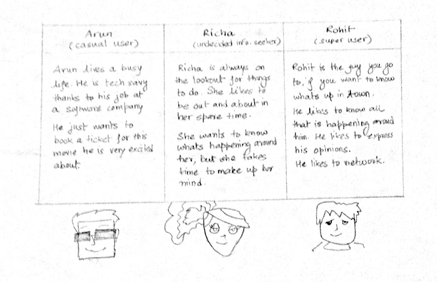 Arun
(casual user)
Arun lives a busy
life. He is tech savy
thanks to his job at
a software company
He just wants to
book a ticket for this
movie he is very excited
about.
Richa
(undecided info. seeker)
Richa is always on
the lookout for things
to do. She likes to
be out and about in
her spare time.
She wants to know
whats happening around
her, but she takes
time to make up her
mind.
Rohit
(super user)
Rohit is the guy you go
to, if you want to know
whats up in town.
He likes to know all
that is happening around
him. He likes to express
his opinions.
He likes to network.